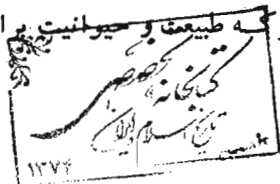 که طبیعت و حیوانیت بر ا
کتابخانه تخصصی
تاریخ اسلام و ایران
۱۳۷۴